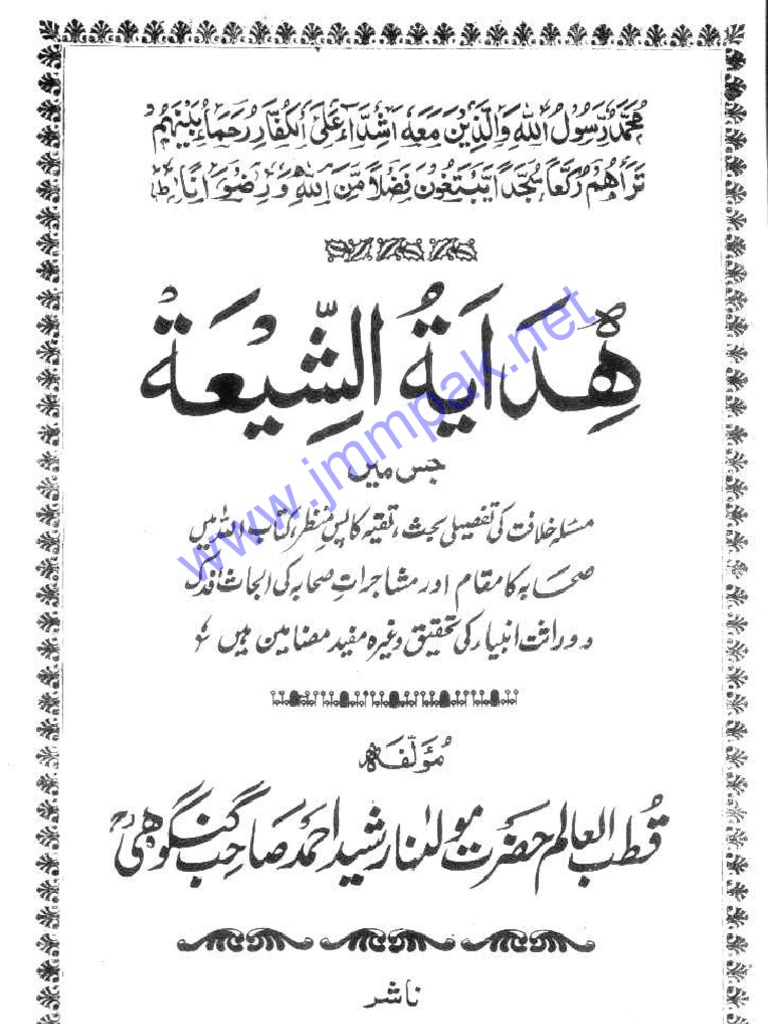 مُحَمَّدٌ رَّسُوْلُ اللّٰهِ وَالَّذِيْنَ مَعَهٗ اَشِدَّآءُ عَلَى الْكُفَّارِ رُحَمَآءُ بَيْنَهُمْ
تَرٰاهُمْ رُكَّعًا سُجَّدًا يَّبْتَغُوْنَ فَضْلًا مِّنَ اللّٰهِ وَرِضْوَانًا ط
هِدَايَةُ الشِّيْعَة
جس میں
مسئلہ خلافت کی تفصیلی بحث، تقیہ کا پس منظر، کتاب اللہ میں
صحابہ کا مقام اور مشاجراتِ صحابہ کی ابحاث، فدک
و وراثت انبیاء کی تحقیق وغیرہ مفید مضامین ہیں
مُؤلّفہ
قُطب العالم حضرت مولٰنا رشید احمد صاحب گنگوھی رح
ناشر
www.jmmpak.net